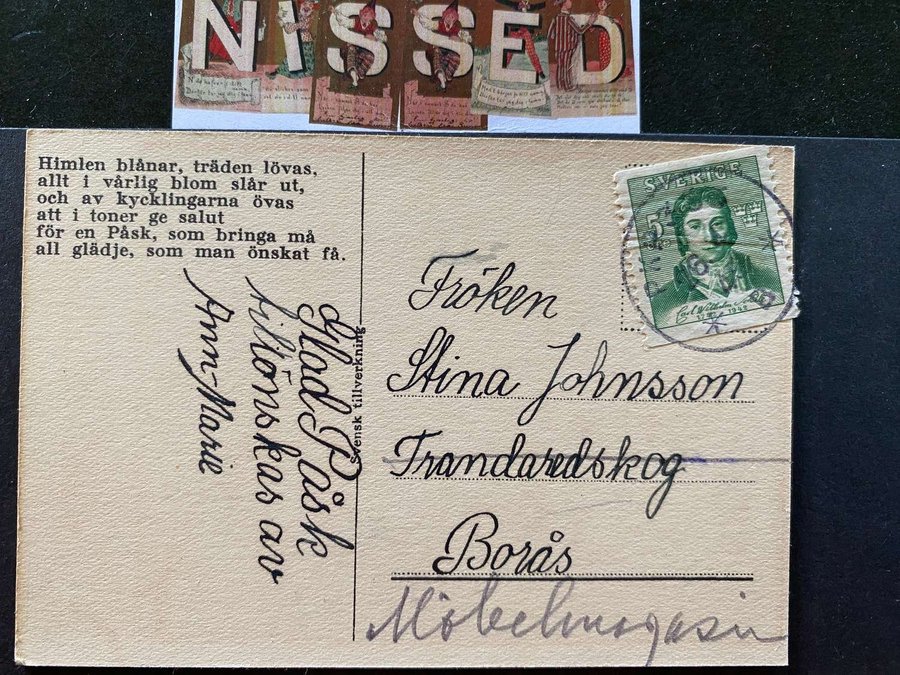 NISSED
Himlen blånar, träden lövas,
allt i vårlig blom slår ut,
och av kycklingarna övas
att i toner ge salut
för en Påsk, som bringa må
all glädje, som man önskat få.
Glad Påsk
tillönskas av
Ann-Marie
Svensk tillverkning
SVERIGE
5
1942
Fröken
Stina Johnsson
Trandaredskog
Borås
Möbelmagasin